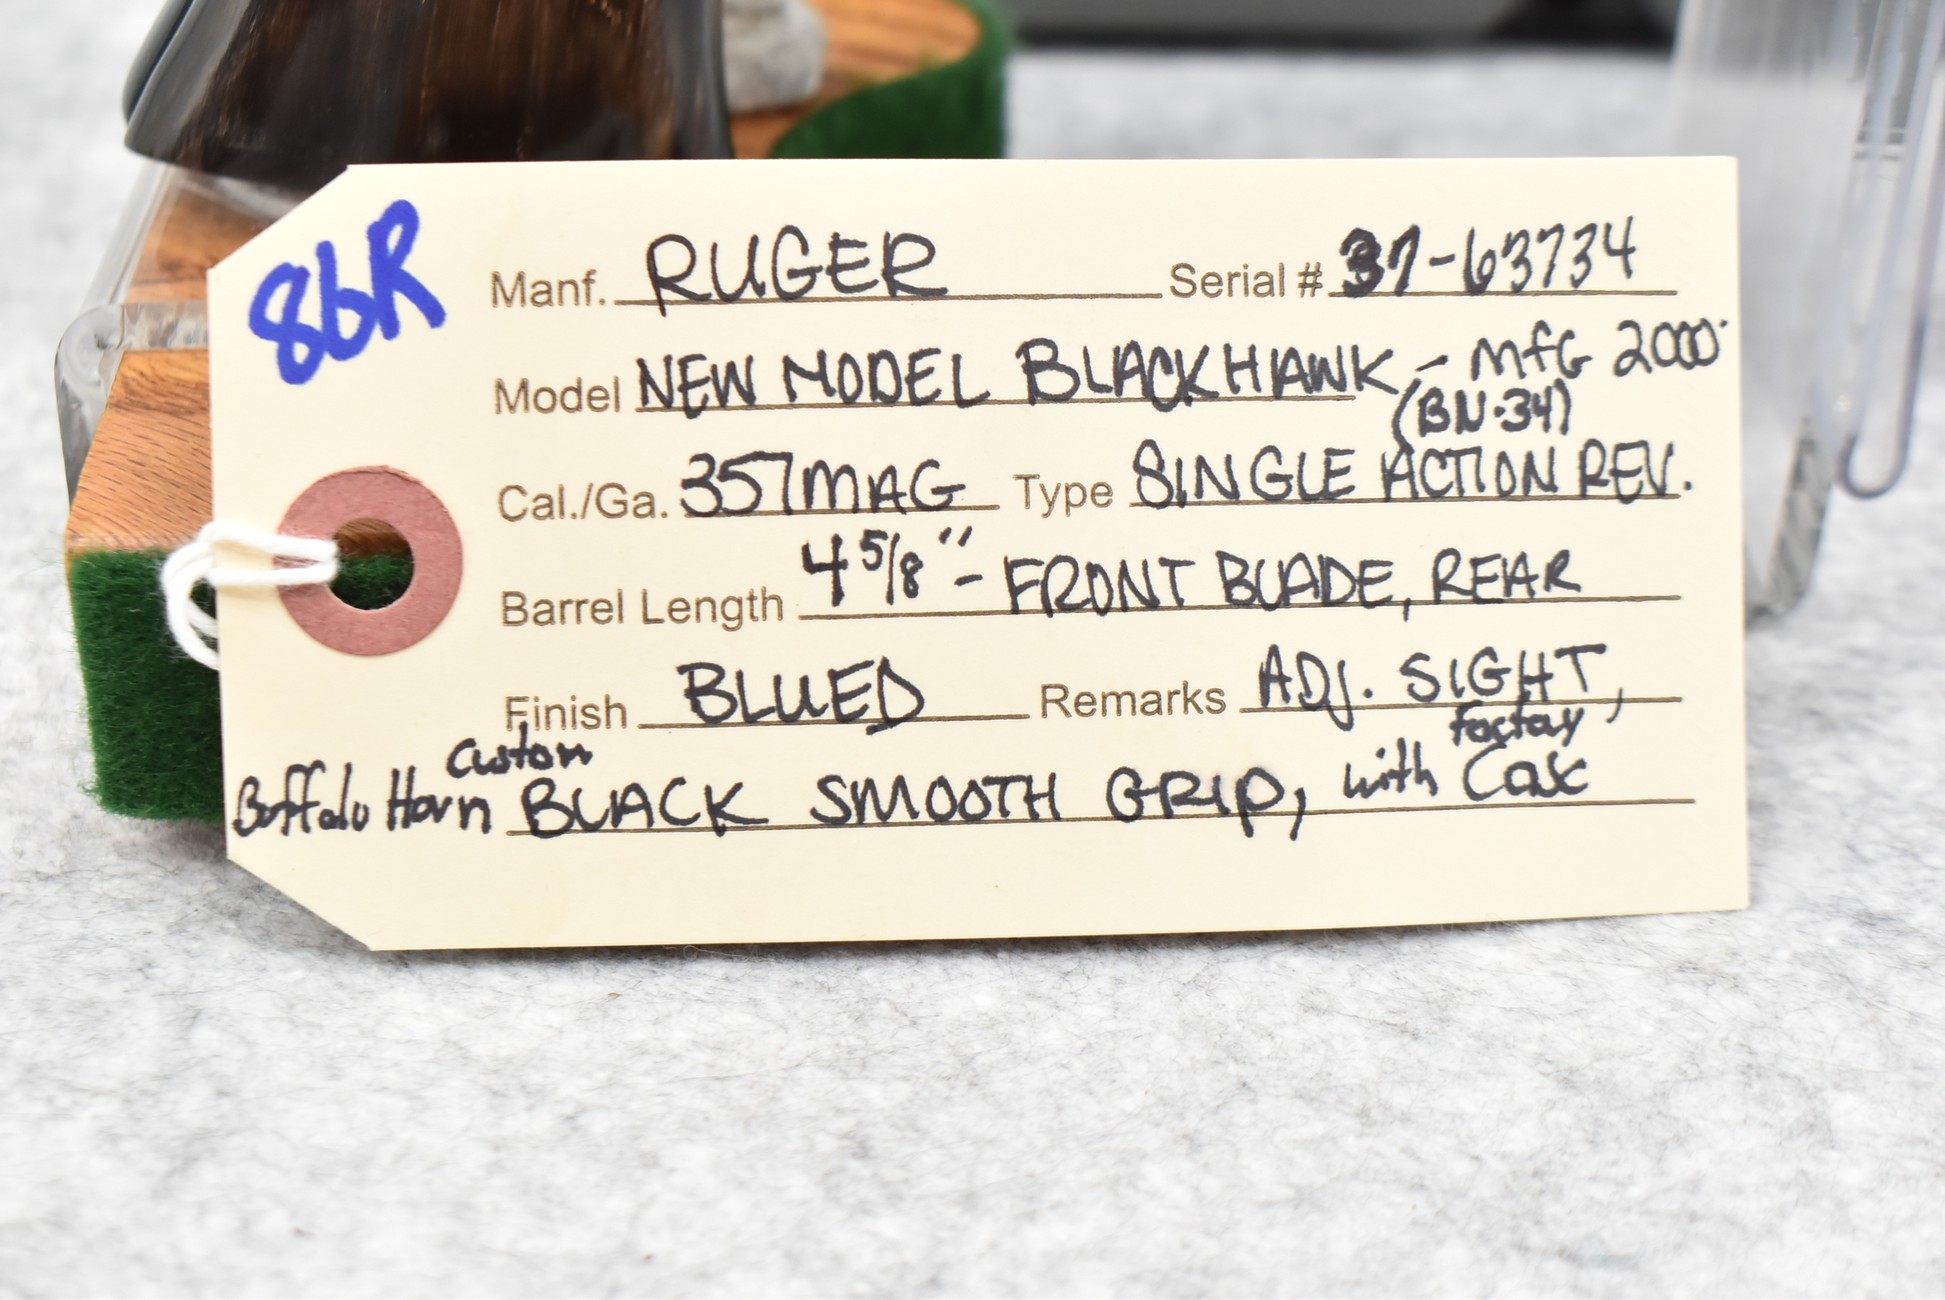 86R
Manf. RUGER Serial # 37-63734
Model NEW MODEL BLACKHAWK - MFG 2000
(BN-34)
Cal./Ga. 357MAG Type SINGLE ACTION REV.
Barrel Length 4 5/8" - FRONT BLADE, REAR
Finish BLUED Remarks ADJ. SIGHT,
Custom factory
Buffalo Horn BLACK SMOOTH GRIP, with Case